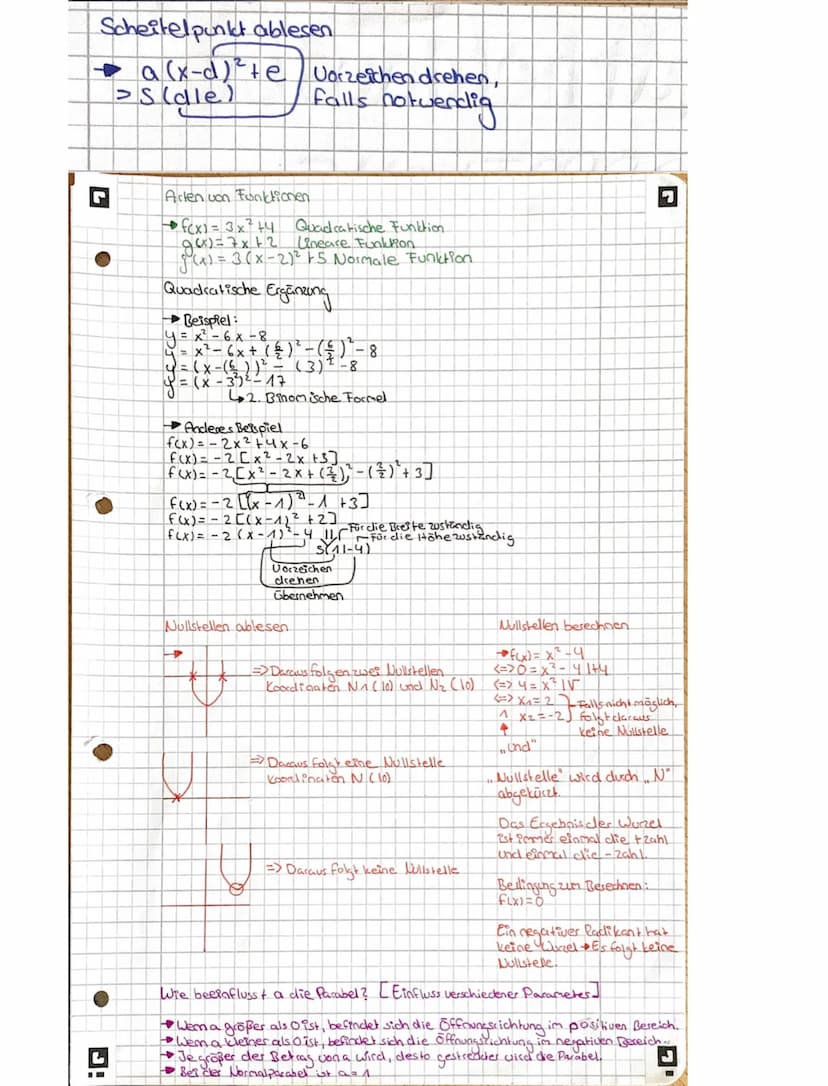 Scheitelpunkt ablesen
→ a(x-d)²+e Vorzeichen drehen,
> S(d|e) falls notwendig
Arten von Funktionen
→ f(x) = 3x²+4 Quadratische Funktion
g(x) = 7x+2 Lineare Funktion
f(x) = 3(x-2)²+5 Normale Funktion
Quadratische Ergänzung
→ Beispiel:
y = x²-6x-8
y = x²-6x+(6/2)²-(6/2)²-8
y = (x-(6/2))²-(3)²-8
y = (x-3)²-17
↳ 2. Binomische Formel
→ Anderes Beispiel
f(x) = -2x²+4x-6
f(x) = -2[x²-2x+3]
f(x) = -2[x²-2x+(2/2)²-(2/2)²+3]
f(x) = -2[(x-1)²-1+3]
f(x) = -2[(x-1)²+2]
Für die Breite zuständig
f(x) = -2(x-1)²-4 || Für die Höhe zuständig
S(1|-4)
Vorzeichen
drehen
übernehmen
Nullstellen ablesen
→
=> Daraus folgen zwei Nullstellen
Koordinaten N1(|0) und N2(|0)
=> Daraus folgt eine Nullstelle
Koordinaten N(|0)
=> Daraus folgt keine Nullstelle
Nullstellen berechnen
→ f(x) = x²-4
<=> 0 = x²-4 |+4
<=> 4 = x² |√
<=> x1 = 2 } Falls nicht möglich,
∧ x2 = -2 } folgt daraus
↑ keine Nullstelle
„und"
„Nullstelle" wird durch „N"
abgekürzt.
Das Ergebnis der Wurzel
ist immer einmal die + zahl
und einmal die - zahl.
Bedingung zum Berechnen:
f(x)=0
Ein negativer Radikant hat
keine Wurzel → Es folgt keine
Nullstelle.
Wie beeinflusst a die Parabel? [Einfluss verschiedener Parameter]
→ Wenn a größer als 0 ist, befindet sich die Öffnungsrichtung im positiven Bereich.
→ Wenn a kleiner als 0 ist, befindet sich die Öffnungsrichtung im negativen Bereich.
→ Je größer der Betrag von a wird, desto gestreckter wird die Parabel.
→ Bei der Normalparabel ist a = 1